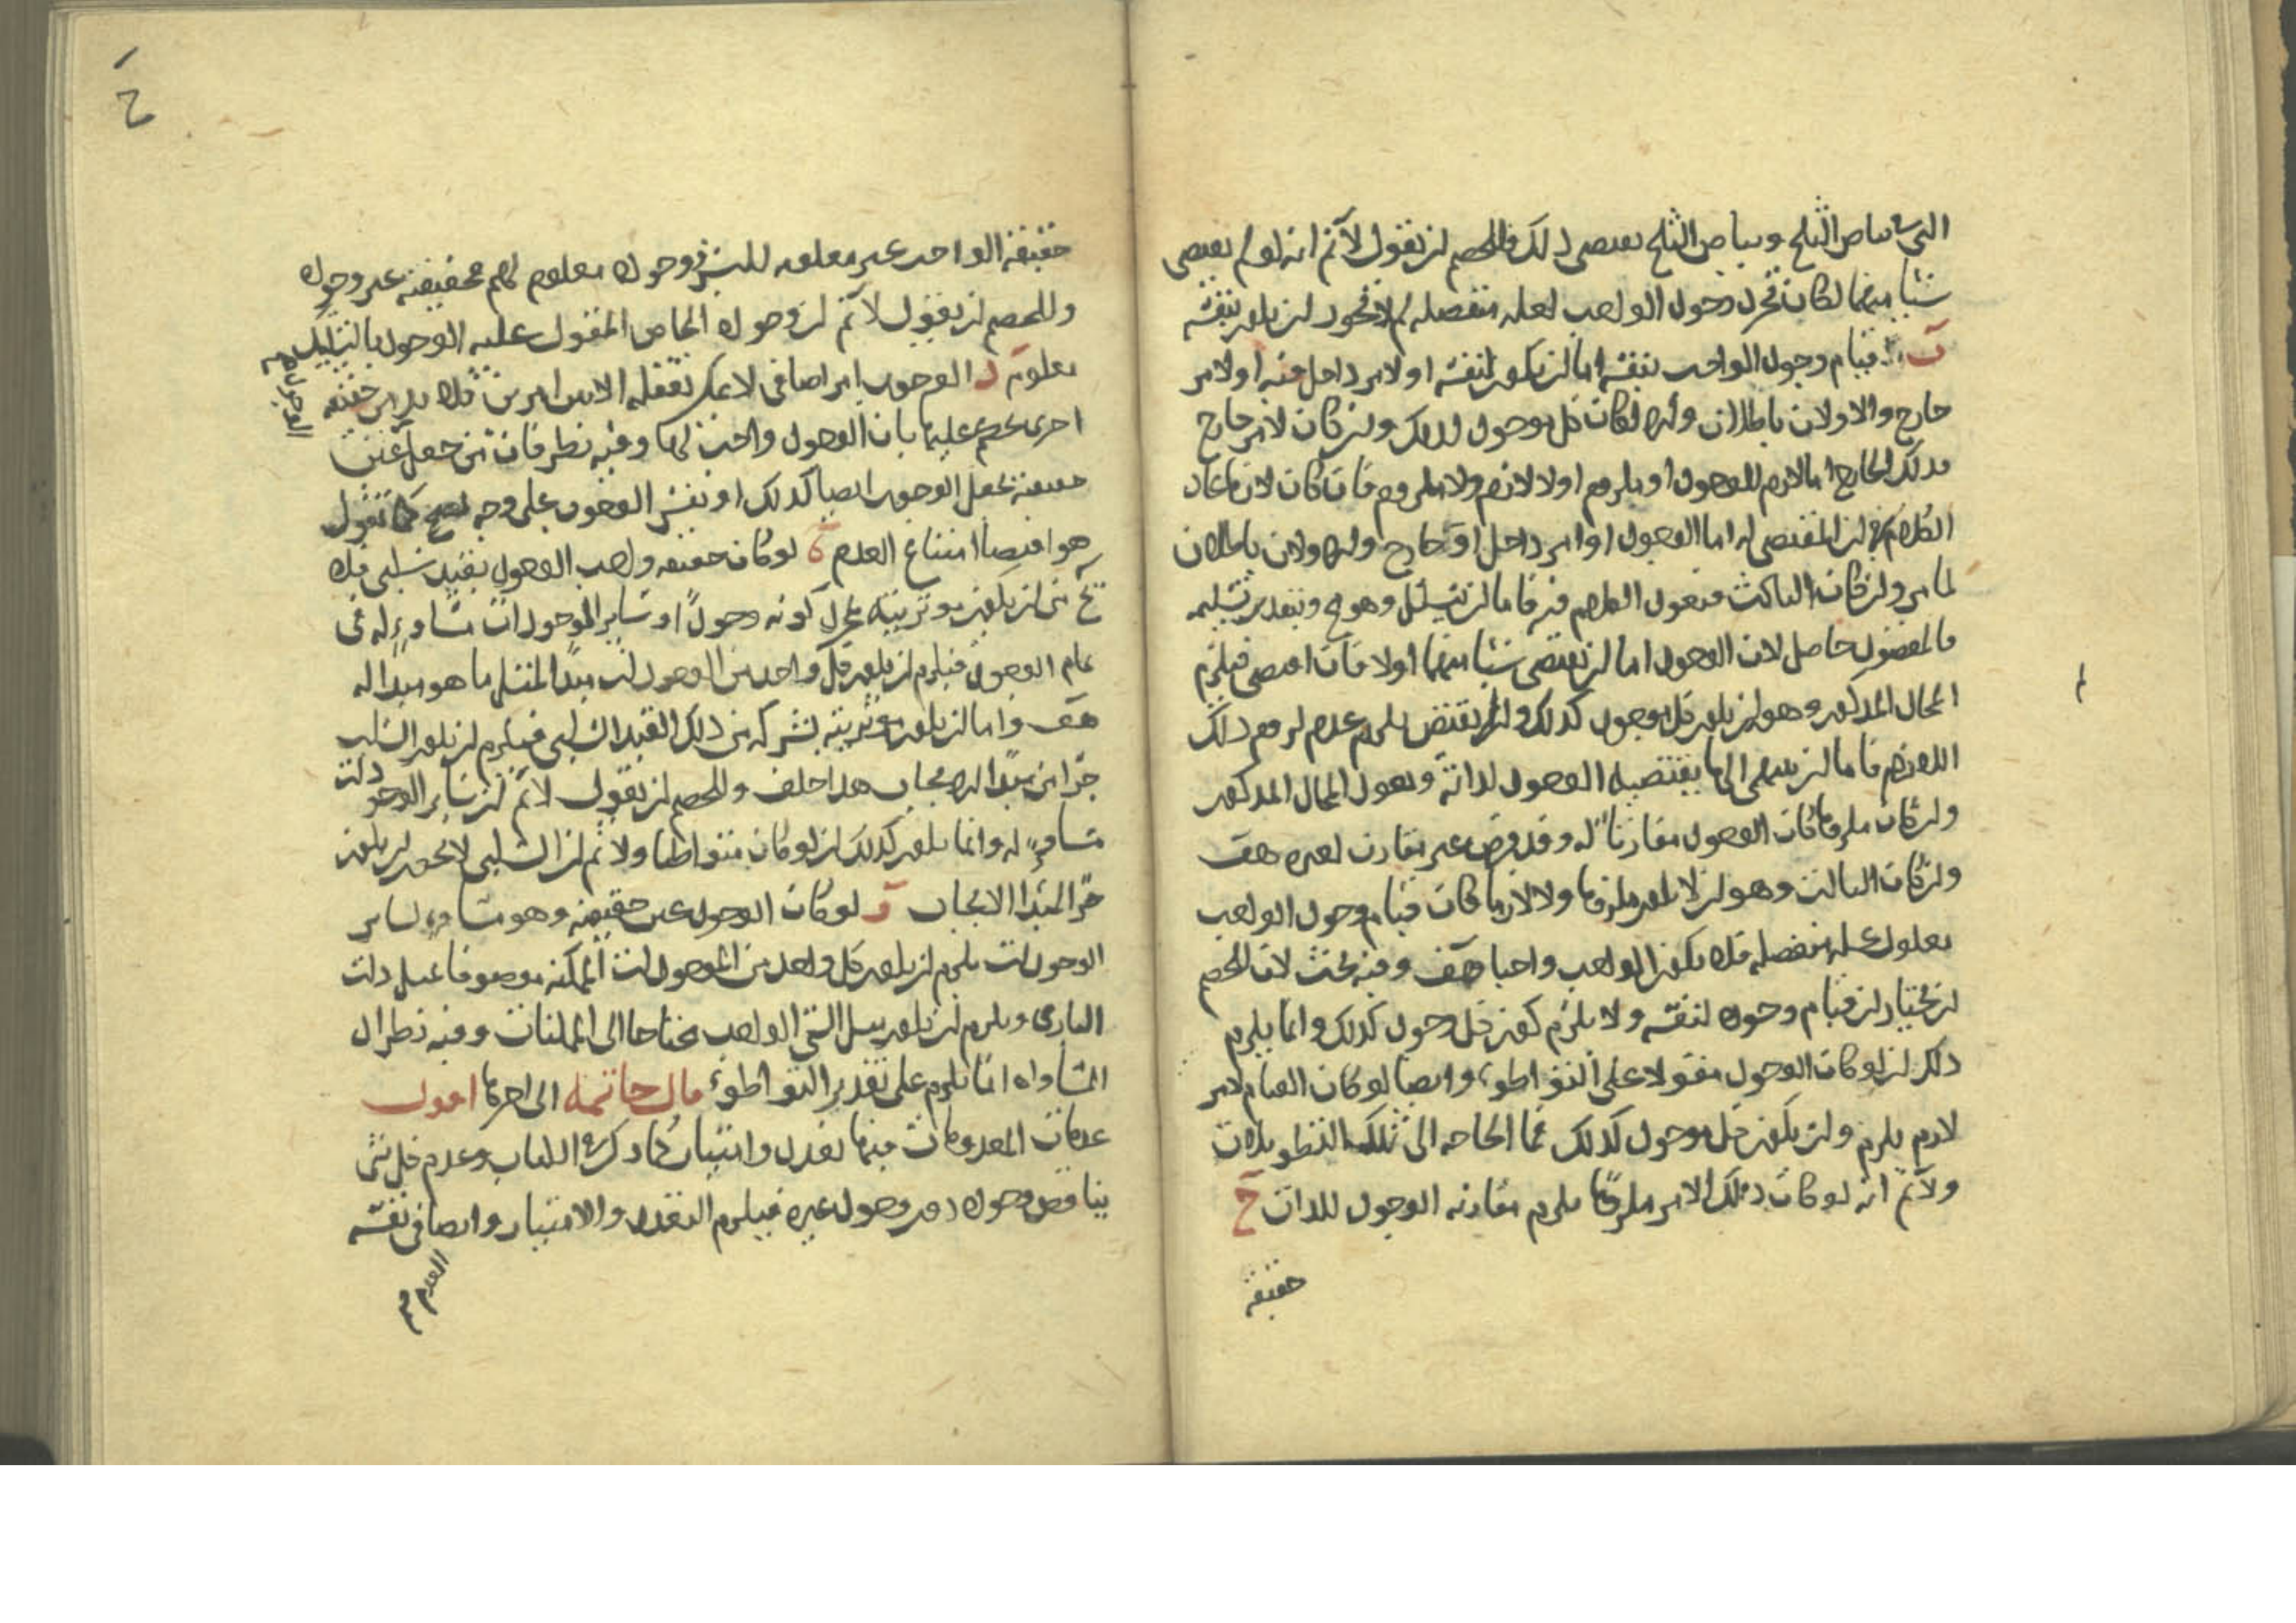 بياض الثلج وبياض الثلج يقتضي ذلك وللخصم ان يقول لا نم انه لو لم يقتضي
شيئا منهما لكان تجرد وجود الواجب لعله منفصله لم لا يجوز ان يكون بنفسه
ب قيام وجود الواجب بنفسه اما ان يكون لنفسه او لامر داخل فيه او لامر
خارج والاولان باطلان والا لكان كل موجود كذلك وان كان لامر خارج
فذلك الخارج اما لازم للوجود او ملزوم او لا لازم ولا ملزوم فان كان لازما عاد
الكلام في ان المقتضي له اما الوجود او امر داخل او خارج والاولان باطلان
لما مر وان كان الثالث فنعود الكلام فيه فاما ان يتسلسل وهو مح وبتقدير تسليمه
فالمقصود حاصل لان الوجود اما ان يقتضي شيئا منهما او لا فان اقتضى فيلزم
المحال المذكور وهو ان يكون كل موجود كذلك وان لم يقتض يلزم عدم لزوم ذلك
اللازم فاما ان ينتهي الى ما يقتضيه الوجود لذاته ويعود المحال المذكور
وان كان ملزوما كان الوجود مقارنا له وقد فرض غير مقارن لغيره هف
وان كان الثالث وهو ان لا يكون ملزوما ولا لازما كان قيام وجود الواجب
معلول علة منفصله فلا يكون الواجب واجبا هف وفيه بحث لان للخصم
ان يختار ان قيام وجوده لنفسه ولا يلزم كون كل وجود كذلك وانما يلزم
ذلك ان لو كان الوجود مقولا على التواطوء وايضا لو كان القيام لامر
لازم يلزم وان يكون كل موجود كذلك فما الحاجه الى تلك التطويلات
ولا نم انه لو كان ذلك الامر ملزوما يلزم مقارنه الوجود للذات ج
حقيقة
حقيقة الواجب غير معلومه للبشر ووجوده معلوم لهم فحقيقته غير وجوده
وللخصم ان يقول لا نم ان وجوده الخاص المقول عليه الوجود بالتشكيك
معلوم د الوجوب امر اضافي لا يمكن تعقله الا بين امرين فلا بد من حقيقة
اخرى يحكم عليها بان الوجود واجب لها وفيه نظر فان من جعل عين
حقيقته يجعل الوجوب ايضا كذلك او يفسر الوجوب على وجه كما تقول
هو اقتضا امتناع العدم ه لو كان حقيقه واجب الوجود بقيد سلبي فلا
يخ من ان يكون موثريته بمجرد كونه وجودا وساير الموجودات مساويه له في
تمام الوجود فيلزم ان يكون كل واحد من الموجودات مبدا لمثل ما هو مبدا له
هف واما ان يكون موثريته بشركه من ذلك القيد السلبي فيلزم ان يكون السلب
جزا من مبدا الايجاب هذا خلف وللخصم ان يقول لا نم ان ساير الوجودات
مساويه له وانما يكون كذلك ان لو كان متواطيا ولا نم ان السلبي لا يجوز ان يكون
جزا لمبدا الايجاب و لو كان الوجود عين حقيقته وهو مساو لساير
الوجودات يلزم ان يكون كل واحد من الموجودات الممكنه موصوفا بمثل ذات
الباري ويلزم ان يكون مثل الشي الواجب محتاجا الى الممكنات وفيه نظر اذ
المساواه انما يلزم على تقدير التواطوء قال خاتمة الى اخرها اقول
عدمات المعدومات فيها تعدد وامتياز كما ذكره الكتاب وعدم كل شي
يناقض وجوده دون وجود غيره فيلزم التعدد والامتياز وايضا في نفسه
العدم